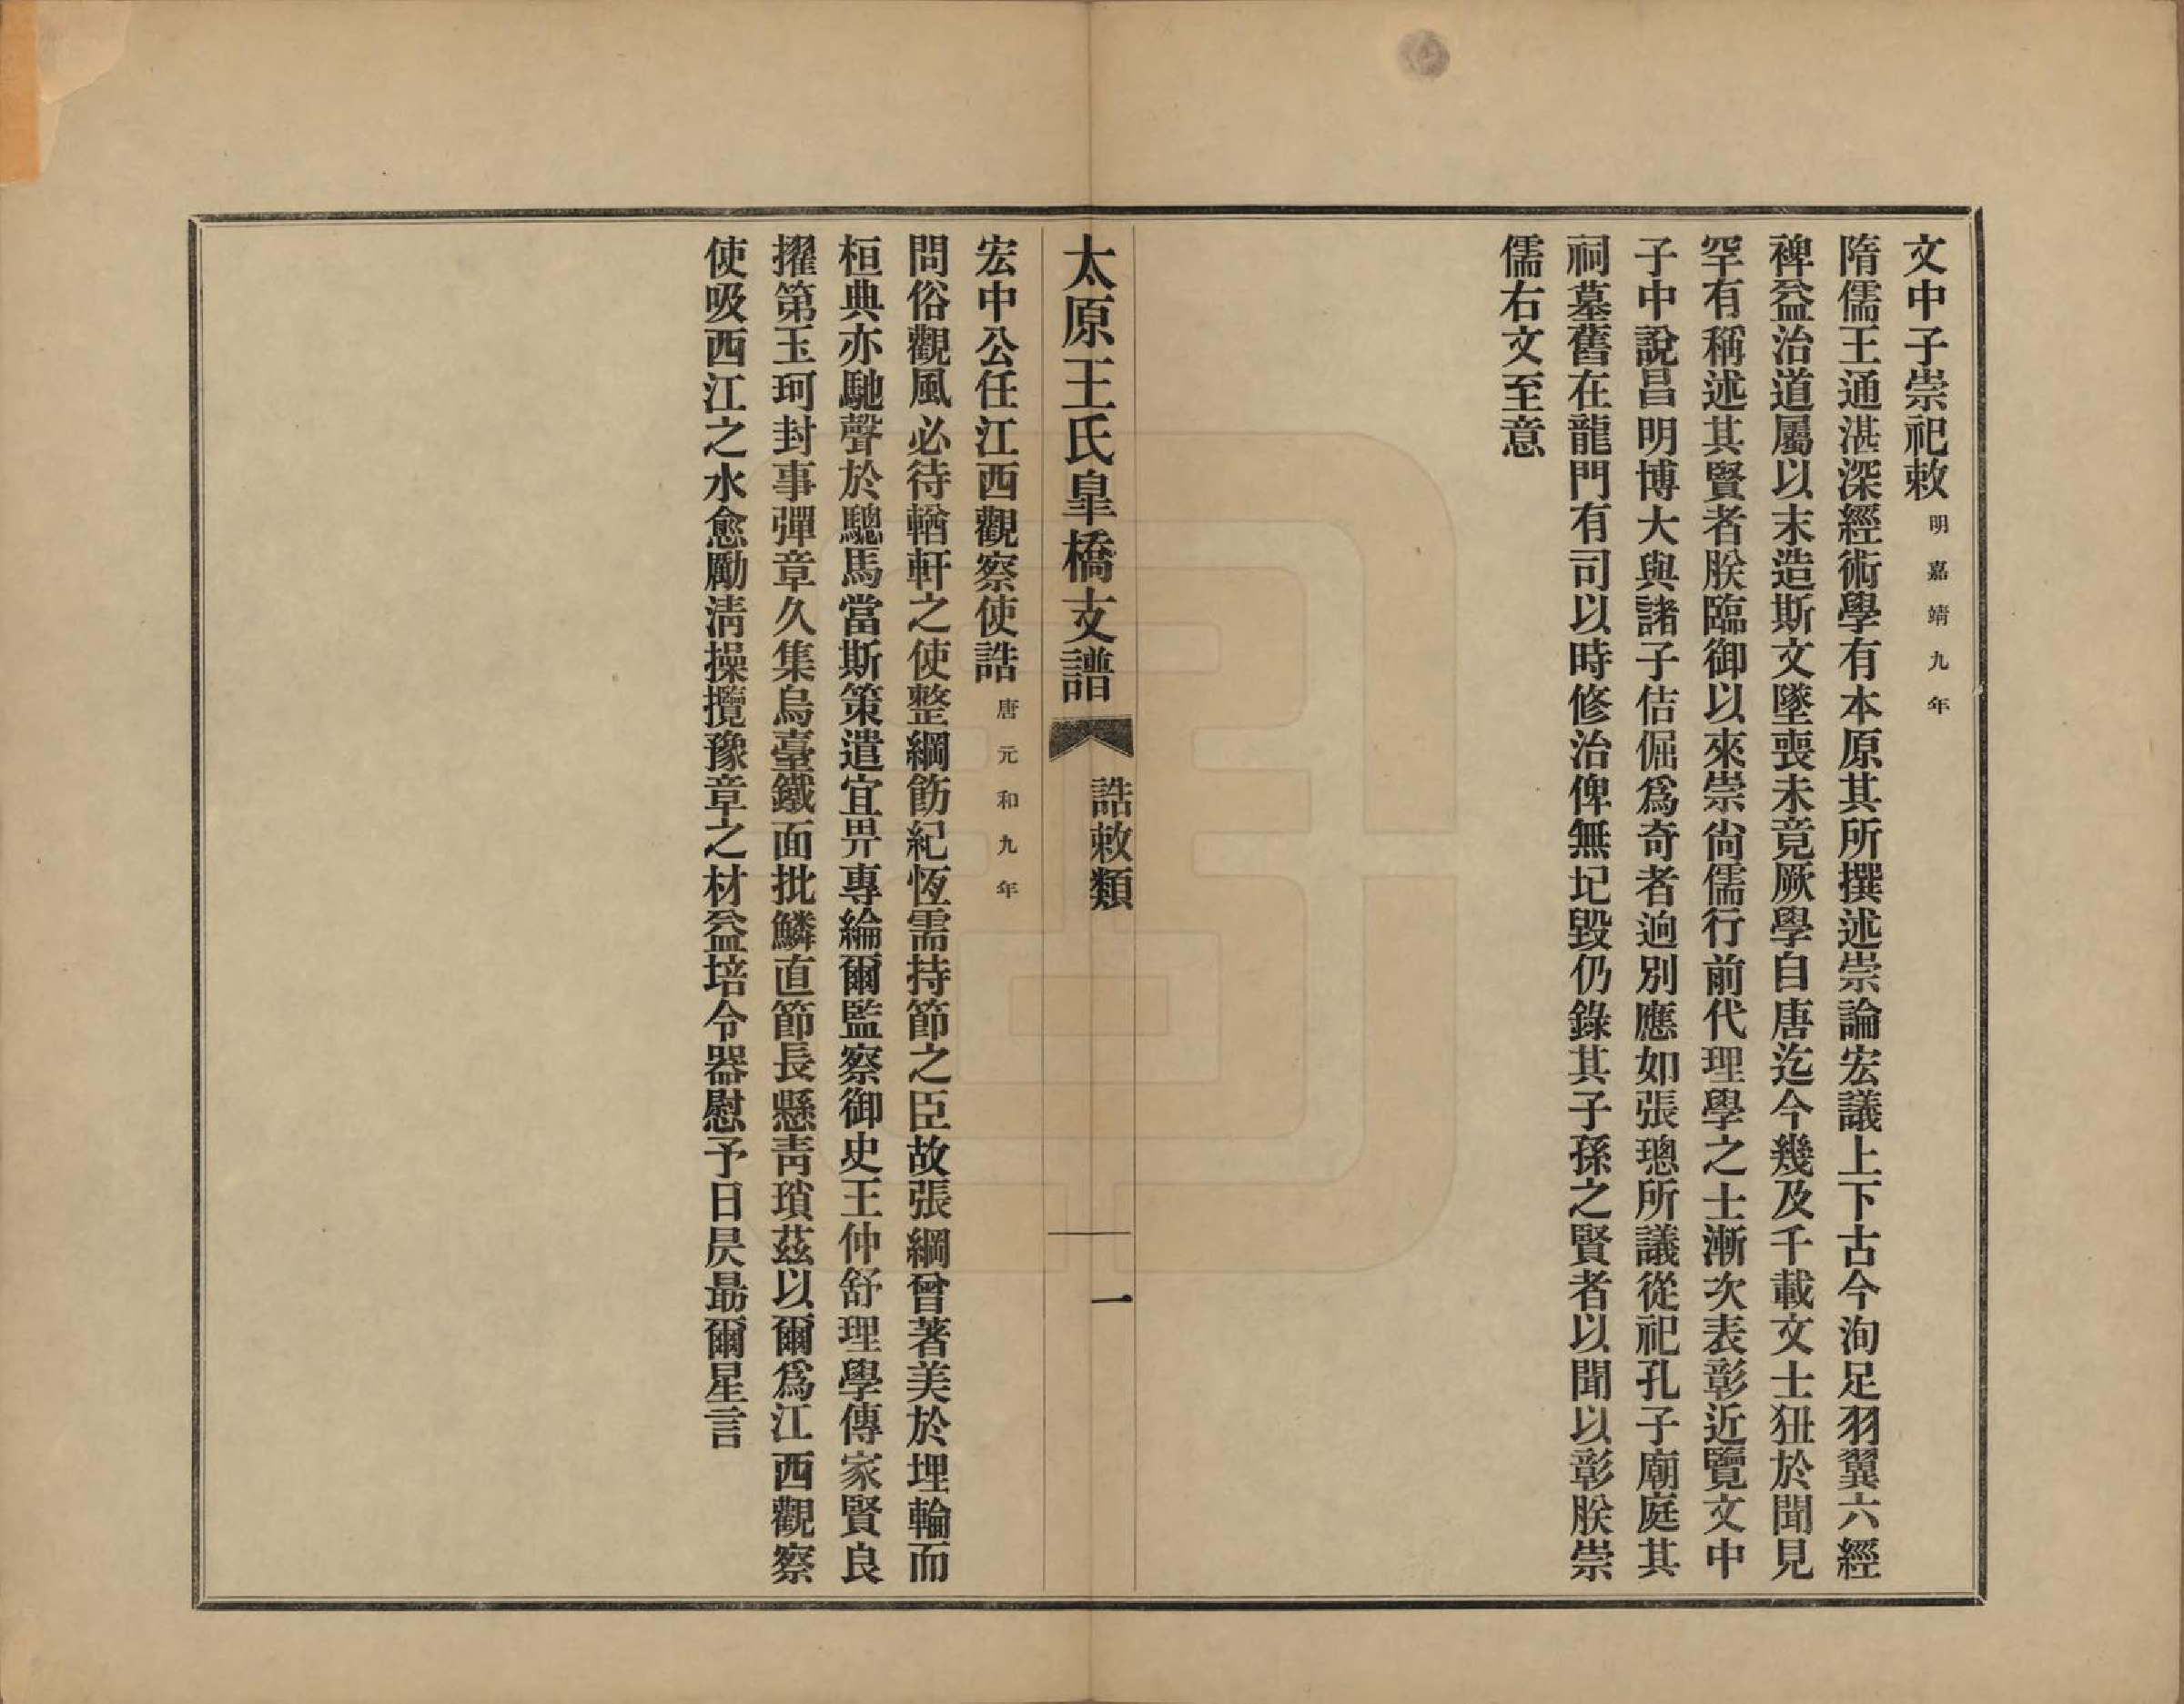 文中子崇祀敕明嘉靖九年
隋儒王通湛深經術學有本原其所撰述崇論宏議上下古今洵足羽翼六經
裨益治道屬以末造斯文墜喪未竟厥學自唐迄今幾及千載文士狃於聞見
罕有稱述其賢者朕臨御以來崇尙儒行前代理學之士漸次表彰近覽文中
子中說昌明博大與諸子佶倔爲奇者逈別應如張璁所議從祀孔子廟庭其
祠墓舊在龍門有司以時修治俾無圮毀仍錄其子孫之賢者以聞以彰朕崇
儒右文至意
太原王氏皐橋支譜 誥敕類 一
宏中公任江西觀察使誥唐元和九年
問俗觀風必待輶軒之使整綱飭紀恆需持節之臣故張綱曾著美於埋輪而
桓典亦馳聲於驄馬當斯策遣宜畀專綸爾監察御史王仲舒理學傳家賢良
擢第玉珂封事彈章久集烏臺鐵面批鱗直節長懸靑瑣茲以爾爲江西觀察
使吸西江之水愈勵淸操攬豫章之材益培令器慰予日昃勗爾星言